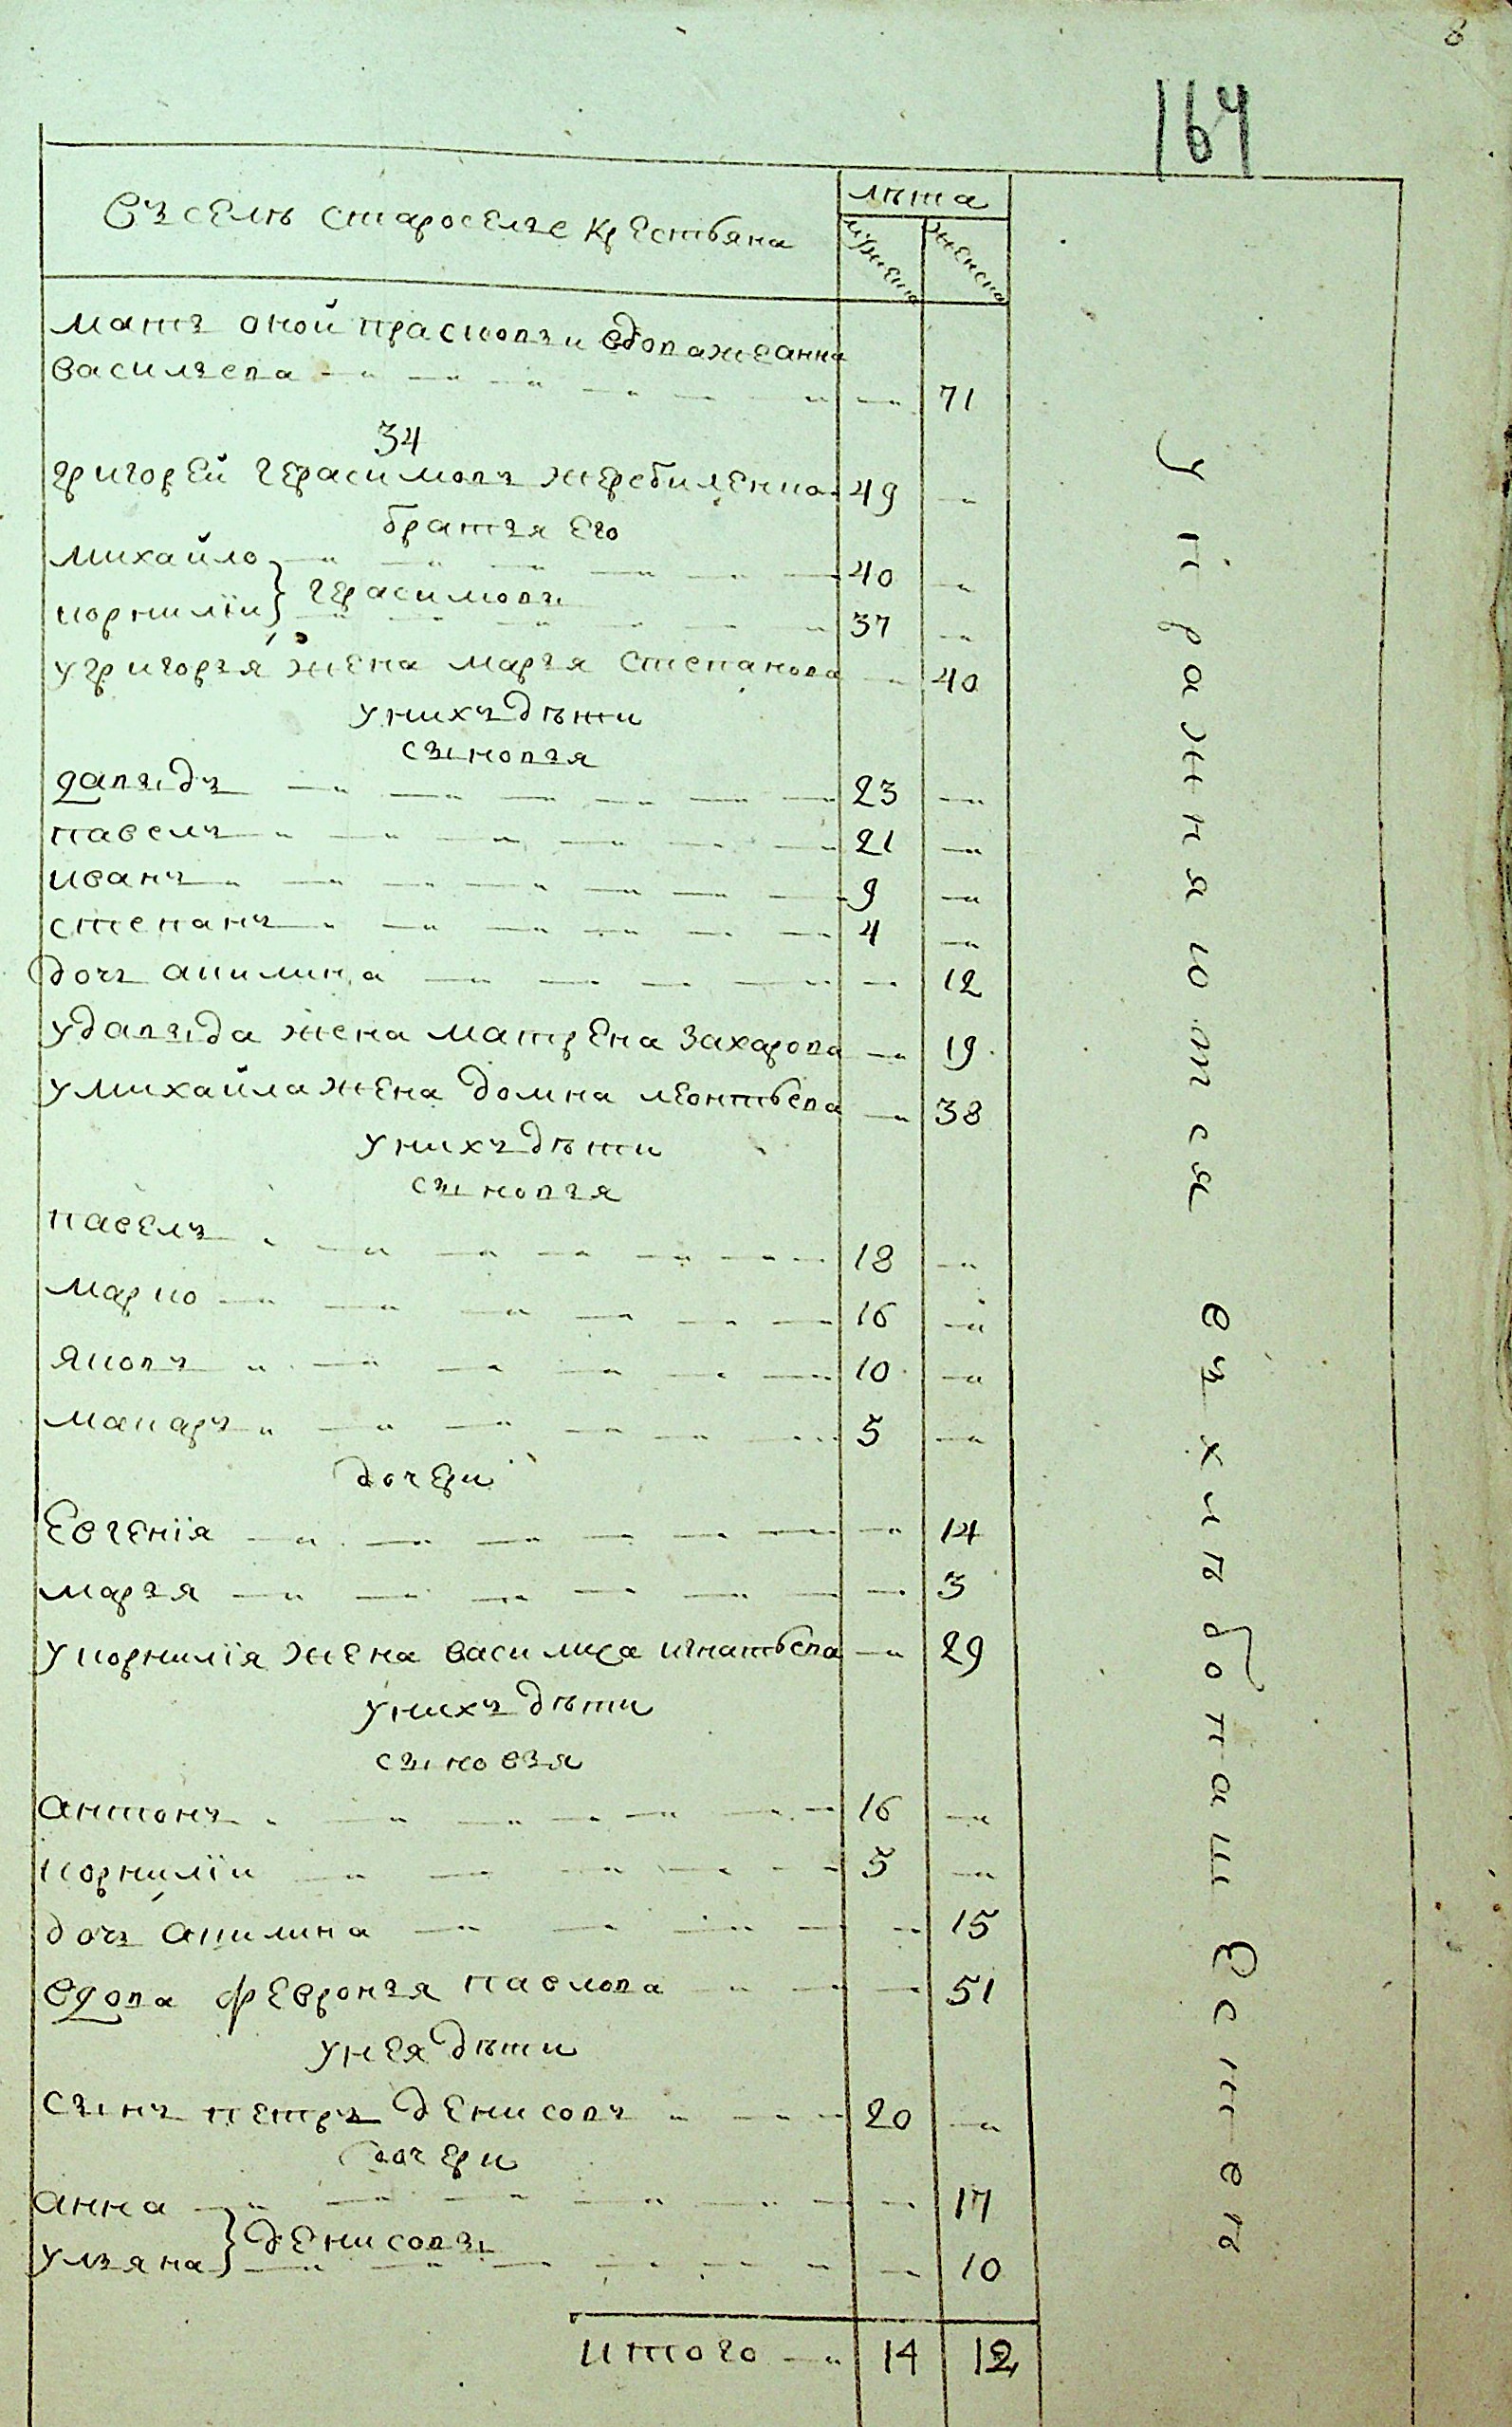 8
164
Въ селѣ староселье крестьяна
лѣта
мужеска
женска
мать оной Прасковьи вдова жеанна
васильева 71
34
григорей герасимовъ жеребиленко 49
братья его
михайло 40
корнилiи } герасимовы 37
у григорья жена марья степанова 40
у нихъ дѣти
сыновья
давыдъ 23
павелъ 21
иванъ 9
степанъ 4
дочь акилина 12
у давыда жена матрена захарова 19
у михайла жена домна леонтьева 38
у нихъ дѣти
сыновья
павелъ 18
марко 16
яковъ 10
макаръ 5
дочери
Евгенiя 14
марья 3
у корнилiя жена василиса игнатьева 29
у нихъ дѣти
сыновья
антонъ 16
корнилiи 5
дочь акилина 15
вдова февронья павлова 51
у нея дѣти
сынъ петръ денисовъ 20
дочери
анна 17
ульяна } денисовы 10
итого 14 12
упражняются въ хлебопашестве